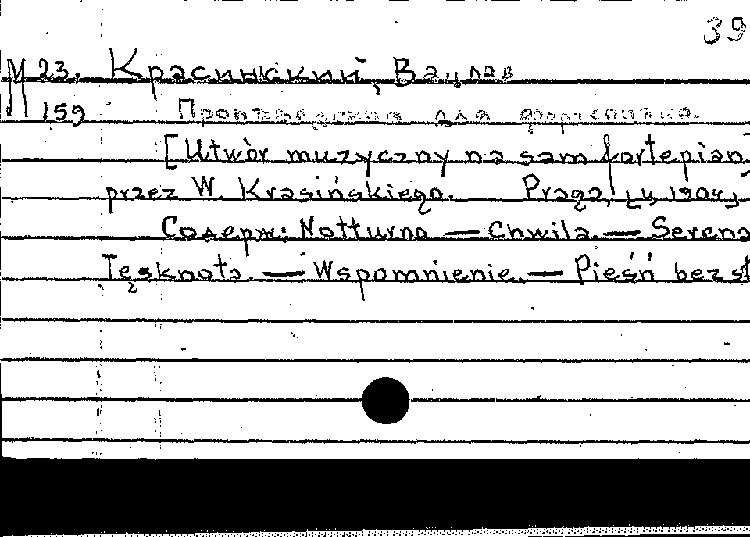 39
М 23. Красинский, Вацлав
159 Произведения для фортепиано.
[Utwór muzyczny na sam fortepian
przez W. Krasińskiego. Praga,
Содерж: Notturno — Chwila. — Serena
Tęsknota. — Wspomnienie. — Pieśń bez sł